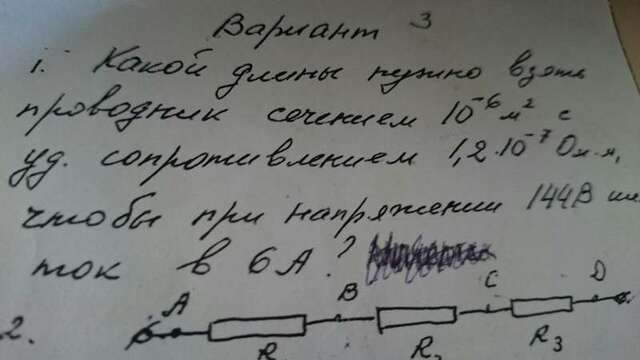 Вариант 3
1. Какой длины нужно взять
проводник сечением 10⁻⁶ м² с
уд. сопротивлением 1,2·10⁻⁷ Ом·м,
чтобы при напряжении 144В
ток в 6А?
2. A B C D
R R₂ R₃